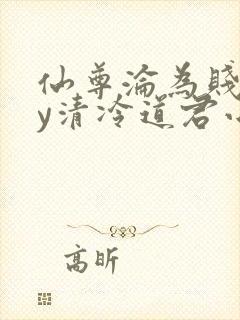 仙尊淪為賤
y清冷道君
高昕